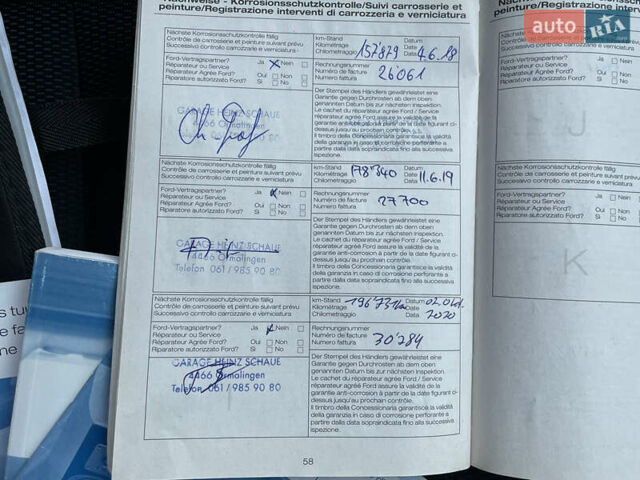 Nachweise - Korrosionsschutzkontrolle/Suivi carrosserie et
peinture/Registrazione interventi di carrozzeria e verniciatura
Nächste Korrosionsschutzkontrolle fällig
Contrôle de carrosserie et peinture suivant prévu
Successivo controllo carrozzeria e verniciatura
km-Stand Datum
Kilométrage Date
Chilometraggio Data
157'879 4.6.18
Ford-Vertragspartner? Ja Nein
Réparateur ou Service
Réparateur Agréé Ford? Oui Non
Riparatore autorizzato Ford? Si No
Rechnungsnummer
Numéro de facture
Numero fattura
26061
GARAGE HEINZ SCHAUE
4466 Ormalingen
Der Stempel des Händlers gewährleistet eine
Garantie gegen Durchrosten ab dem oben
genannten Datum bis zur nächsten Inspektion.
Le cachet du réparateur agréé Ford / Service
réparateur agréé Ford assure la validité de la
garantie anti-corrosion à partir de la date figurant ci-
dessus jusqu'au prochain contrôle.
Il timbro della Concessionaria garantisce la validità
della garanzia in caso di corrosione perforante a
partire dalla data sopraindicata fino alla successiva
ispezione.
Nächste Korrosionsschutzkontrolle fällig
Contrôle de carrosserie et peinture suivant prévu
Successivo controllo carrozzeria e verniciatura
km-Stand Datum
Kilométrage Date
Chilometraggio Data
178'340 11.6.19
Ford-Vertragspartner? Ja Nein
Réparateur ou Service
Réparateur Agréé Ford? Oui Non
Riparatore autorizzato Ford? Si No
Rechnungsnummer
Numéro de facture
Numero fattura
27700
GARAGE HEINZ SCHAUE
4466 Ormalingen
Telefon 061/985 90 80
Der Stempel des Händlers gewährleistet eine
Garantie gegen Durchrosten ab dem oben
genannten Datum bis zur nächsten Inspektion.
Le cachet du réparateur agréé Ford / Service
réparateur agréé Ford assure la validité de la
garantie anti-corrosion à partir de la date figurant ci-
dessus jusqu'au prochain contrôle.
Il timbro della Concessionaria garantisce la validità
della garanzia in caso di corrosione perforante a
partire dalla data sopraindicata fino alla successiva
ispezione.
Nächste Korrosionsschutzkontrolle fällig
Contrôle de carrosserie et peinture suivant prévu
Successivo controllo carrozzeria e verniciatura
km-Stand Datum
Kilométrage Date
Chilometraggio Data
2020
Ford-Vertragspartner? Ja Nein
Réparateur ou Service
Réparateur Agréé Ford? Oui Non
Riparatore autorizzato Ford? Si No
Rechnungsnummer
Numéro de facture
Numero fattura
30'284
GARAGE HEINZ SCHAUE
4466 Ormalingen
Telefon 061/985 90 80
Der Stempel des Händlers gewährleistet eine
Garantie gegen Durchrosten ab dem oben
genannten Datum bis zur nächsten Inspektion.
Le cachet du réparateur agréé Ford / Service
réparateur agréé Ford assure la validité de la
garantie anti-corrosion à partir de la date figurant ci-
dessus jusqu'au prochain contrôle.
Il timbro della Concessionaria garantisce la validità
della garanzia in caso di corrosione perforante a
partire dalla data sopraindicata fino alla successiva
ispezione.
58
peinture/Registrazione inter
Nächste Korrosionsschutzkontrolle fällig
Contrôle de carrosserie et peinture suivant prévu
Successivo controllo carrozzeria e verniciatura
Ford-Vertragspartner? Ja
Réparateur ou Service
Réparateur Agréé Ford? Oui
Riparatore autorizzato Ford? Si
J
Nächste Korrosionsschutzkontrolle fällig
Contrôle de carrosserie et peinture suivant prévu
Successivo controllo carrozzeria e verniciatura
Ford-Vertragspartner? Ja
Réparateur ou Service
Réparateur Agréé Ford? Oui
Riparatore autorizzato Ford? Si
K
auto RIA